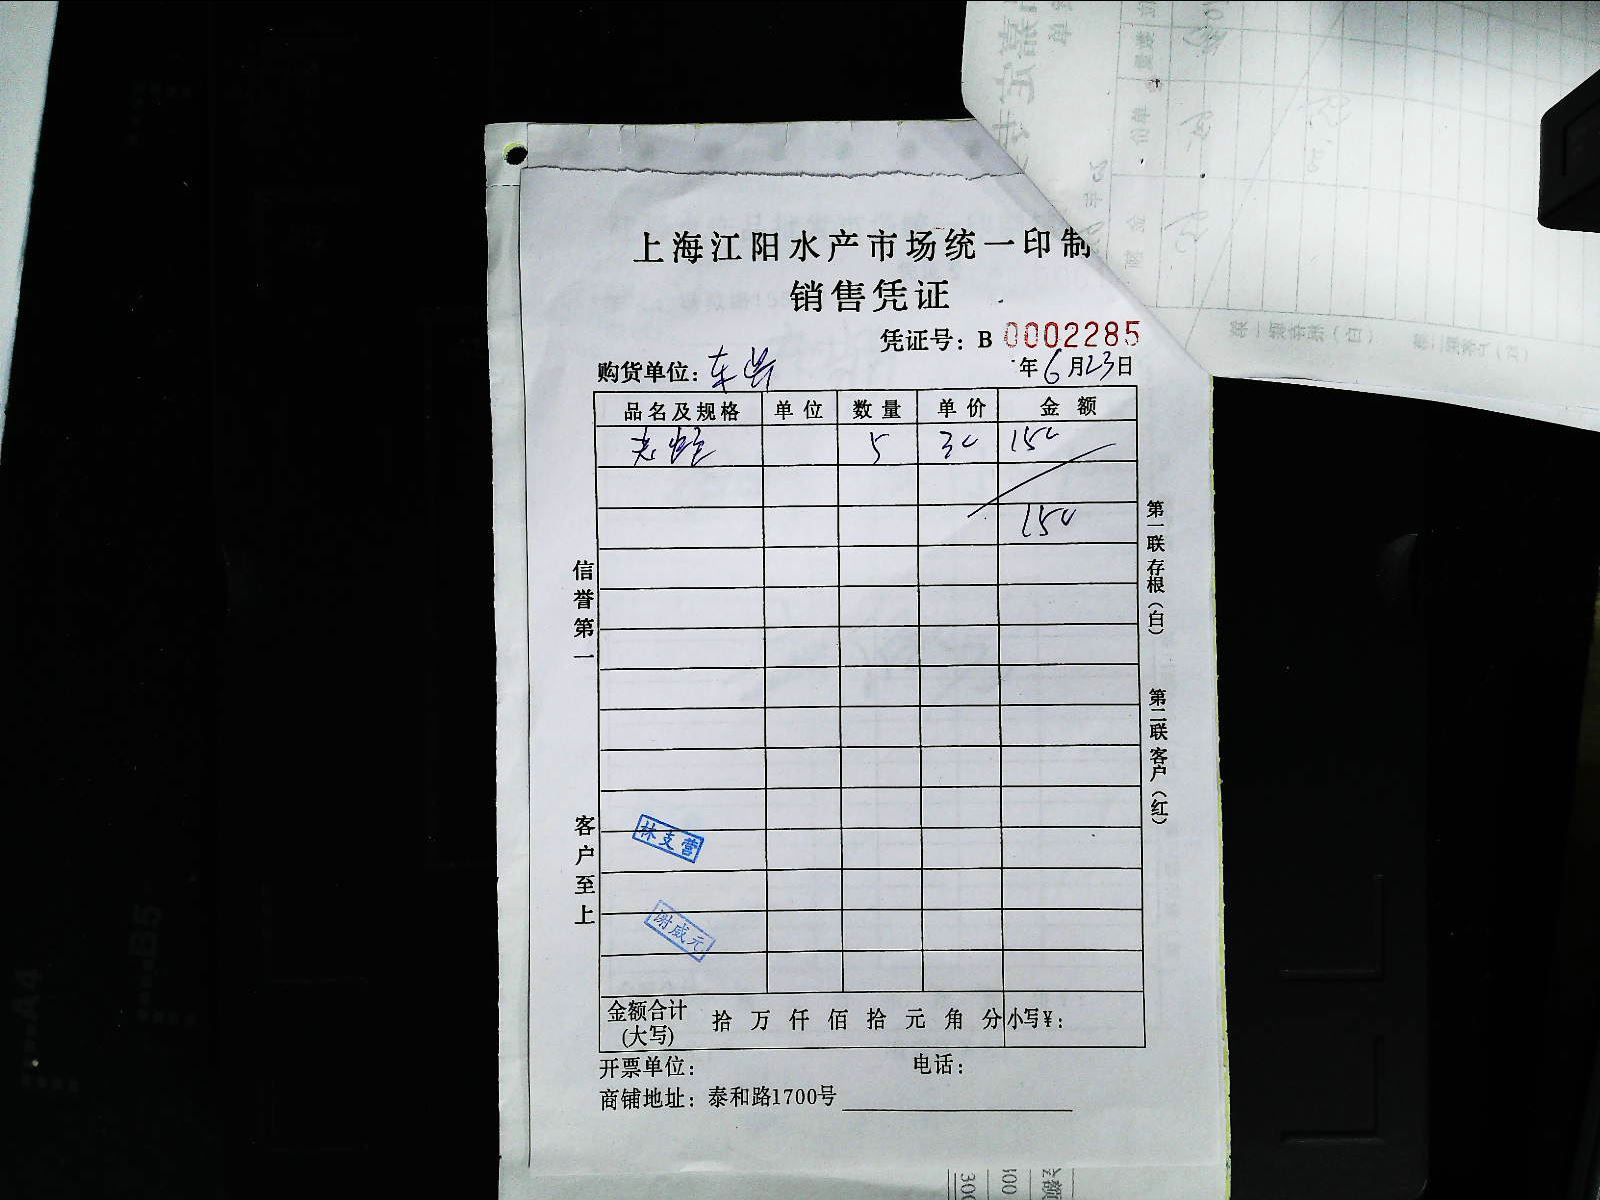 上海江阳水产市场统一印制
销售凭证
凭证号：B 0002285
购货单位：东
年6月23日
品名及规格 单位 数量 单价 金额
老 5 30 150
150
信誉第一
客户至上
第一联存根（白）
第二联客户（红）
林支营
谢成元
金额合计(大写) 拾 万 仟 佰 拾 元 角 分 小写¥：
开票单位： 电话：
商铺地址：泰和路1700号
A4
B5